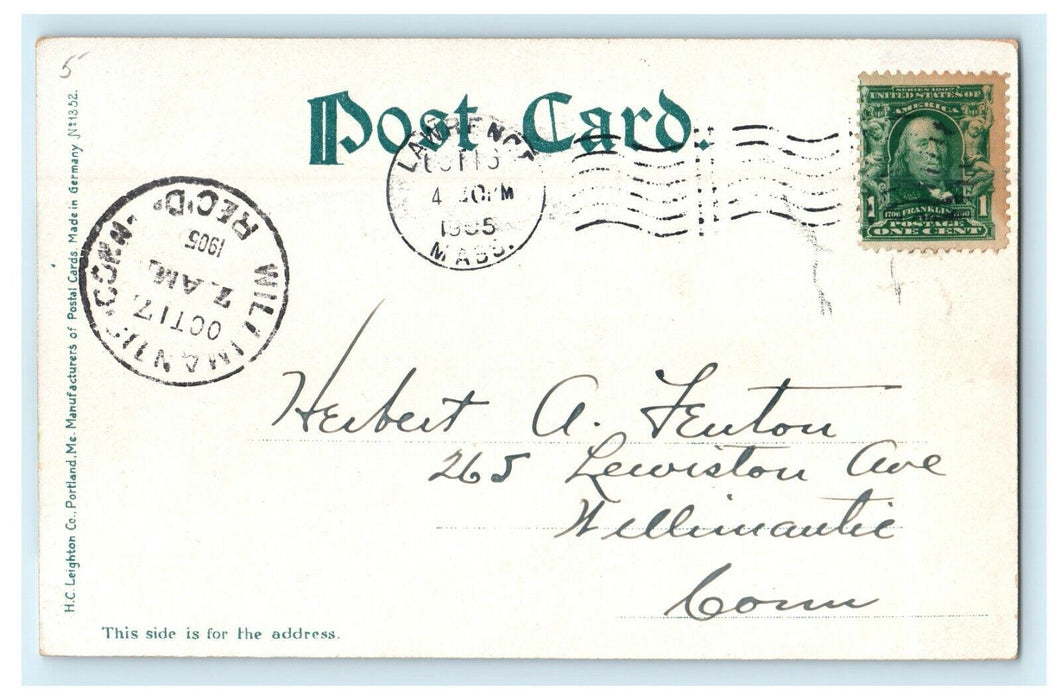 5
Post Card.
H.C. Leighton Co., Portland, Me. Manufacturers of Postal Cards. Made in Germany. Nº 1352.
LAWRENCE
OCT 16
4 PM
1905
MASS.
SERIES 1902
UNITED STATES OF
AMERICA
1706 FRANKLIN 1790
1 POSTAGE 1
ONE CENT
WILLIMANTIC CONN.
OCT 17
7 AM
1905
REC'D
Herbert A. Fenton
265 Lewiston Ave
Willimantic
Conn
This side is for the address.